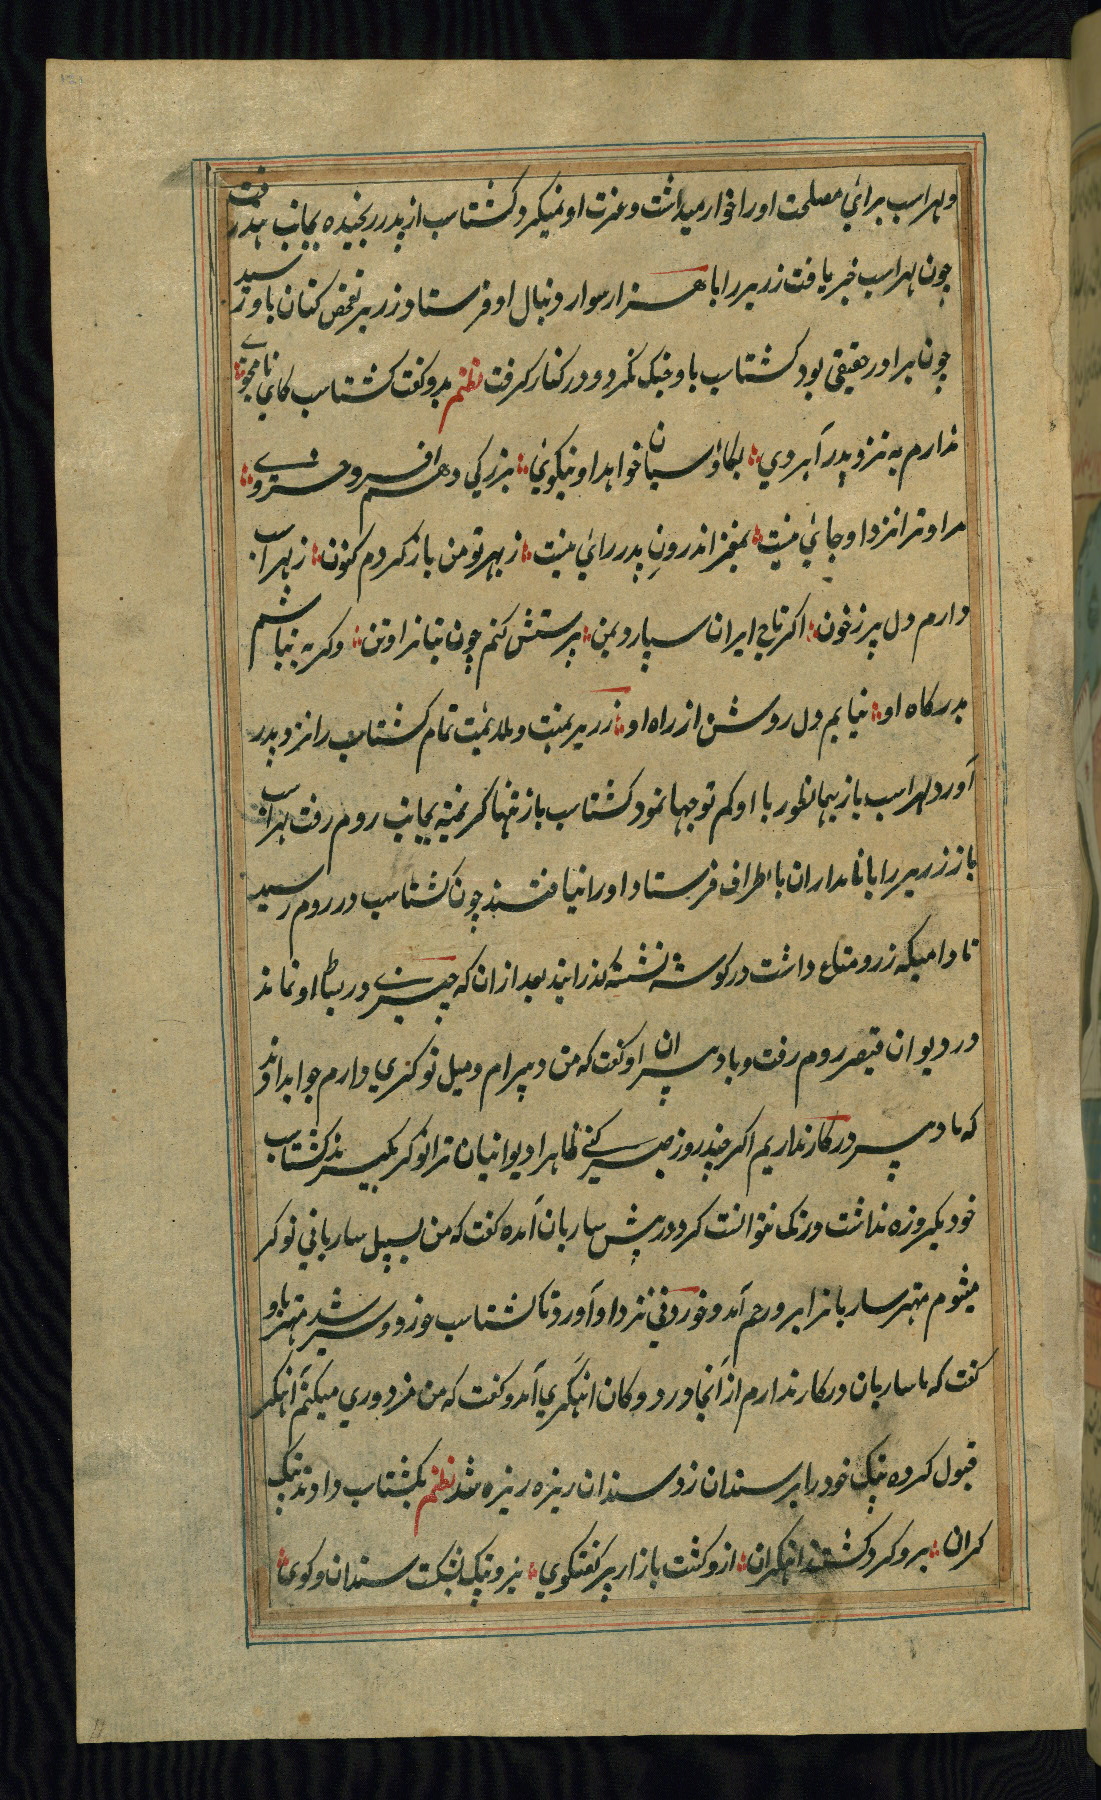 ولهراسب برای مصلحت اورا خوار میداشت و عزت او نمیکرد کشتاسب از پدر رنجیده بجانب هند رفت
چون لهراسب خبر یافت زریر را با هزار سوار دنبال او فرستاد زریر تفحص کنان باو رسید
چون برادر حقیقی بود کشتاسب باو جنک نکرد و در کنار کرفت نظم بدو کفت کشتاسب کای نامجوی
ندارم به نزد پدر آبروی بکاوسیان خواهد او نیکوی بزرکی و هم افسر و خسروی
مرا و ترا نزد او جای نیست بمغز اندرون پدر رای نیست ز بهر تو من باز کردم کنون ز لهراسب
دارم دل پر ز خون اکر تاج ایران سپارد بمن پرستش کنم چون بتانرا وثن وکرنه نباشم
بدرکاه او نیابم دل روشن از راه او زریر بمنت و ملائمت تمام کشتاسب را نزد پدر
آورد لهراسب باز بهمانطور با او کم توجها نمود کشتاسب باز تنها کریخته بجانب روم رفت لهراسب
باز زریر را با نامداران باطراف فرستاد اورا نیافتند چون کشتاسب در روم رسید
تا دامیکه زر و متاع داشت در کوشه نشسته کذرانید بعد ازان که چیزی در بساط او نماند
در دیوان قیصر روم رفت و با دبیران او کفت که من دبیرام و میل نوکری دارم جواب دادند
که ما دبیر درکار نداریم اکر چند روز صبر کنی ظاهرا دیوانیان ترا نوکر بکیرند کشتاسب
خود یکروزه نداشت درنک نتوانست کرد در پیش ساربان آمده کفت که من بسبیل ساربانی نوکر
میشوم مهتر ساربانرا برو رحم آمد و خوردنی نزد او آورد تا کشتاسب خورد و سیر شد مهتر باو
کفت که ما ساربان درکار ندارم از آنجا در دوکان آهنکری آمد و کفت که من مزدوری میکنم آهنکر
قبول کرده پتک خود را بر سندان زد سندان ریزه ریزه شد نظم بکشتاسب دادند پتک
کران برو کرد کشتند آهنکران ازو کشت بازار پر کفتکوی بزد پتک بشکست سندان و کوی